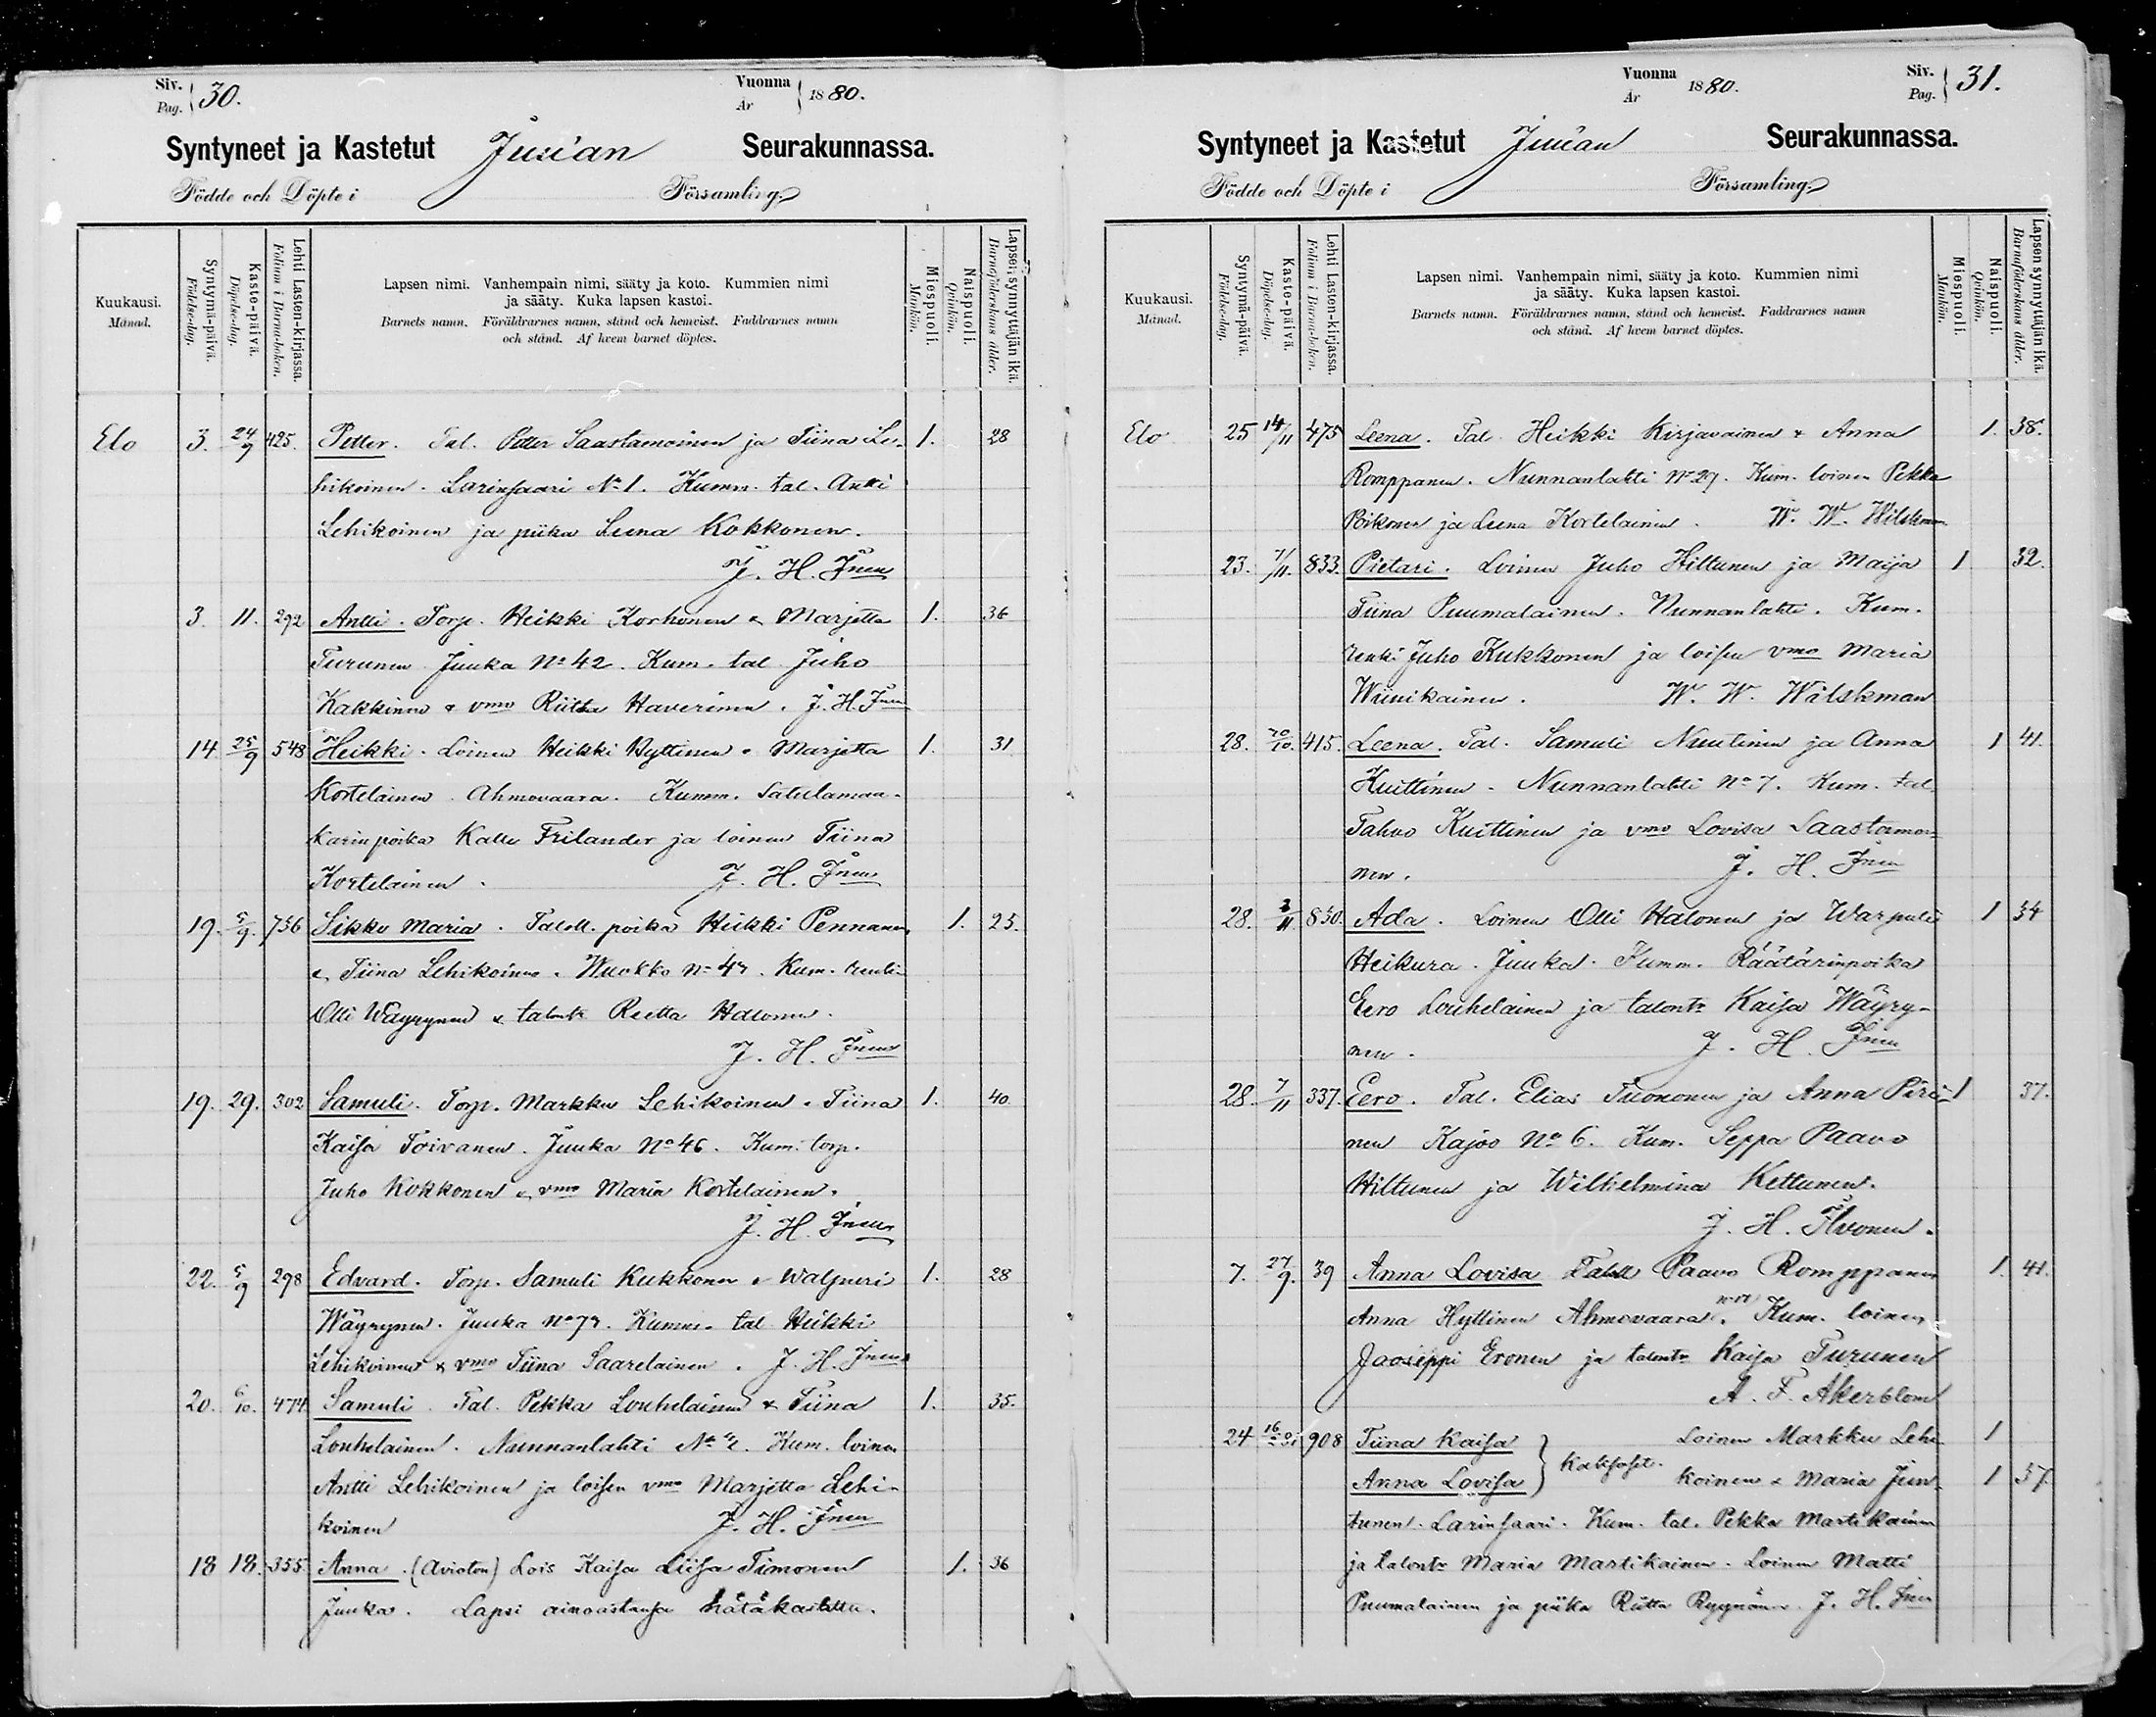 Siv. Pag. 30.
Vuonna År 1880.
Syntyneet ja Kastetut Juuan Seurakunnassa.
Födde och Döpte i Församling.
Kuukausi. Månad.
Syntymä-päivä. Födelse-dag.
Kaste-päivä. Döpelse-dag.
Lehti Lasten-kirjassa. Folium i Barna-boken.
Lapsen nimi. Vanhempain nimi, sääty ja koto. Kummien nimi
ja sääty. Kuka lapsen kastoi.
Barnets namn. Föräldrarnes namn, stånd och hemvist. Faddrarnes namn
och stånd. Af hvem barnet döptes.
Miespuoli. Mankön.
Naispuoli. Qvinkön.
Lapsen synnyttäjän ikä. Barnaföderskans ålder.
Elo 3. 24/9 425. Petter. Tal. Petter Saastamoinen ja Tiina Le- 1. 28
hikoinen. Larinsaari No 1. Kumm. tal. Antti
Lehikoinen ja piika Leena Kokkonen.
J. H. Inen
3. 11. 292 Antti. Torp. Heikki Korhonen & Marjetta 1. 36
Turunen Juuka No 42. Kum. tal Juho
Kakkinen & vmo Riitta Haverinen. J. H. Inen
14. 25/9 548 Heikki. Loinen Heikki Hyttinen & Marjetta 1. 31
Kortelainen. Ahmovaara. Kumm. Satulamaa-
karinpoika Kalle Frilander ja loinen Tiina
Kortelainen. J. H. Inen
19. 5/9. 756 Sikko Maria. Taloll. poika Heikki Pennanen 1. 25.
& Tiina Lehikoinen. Wuokko No 47. Kum. renki
Olli Wäyrynen & talontr Reetta Halonen.
J. H. Inen
19. 29. 302 Samuli. Torp. Markku Lehikoinen & Tiina 1. 40
Kaisa Toivanen. Juuka No 46. Kum. torp.
Juho Kokkonen & vmo Maria Kortelainen.
J. H. Inen
22. 5/9 298 Edvard. Torp. Samuli Kukkonen & Walpuri 1. 28
Wäyrynen. Juuka No 77. Kumm. tal Heikki
Lehikoinen & vmo Tiina Saarelainen. J. H. Inen
20. 6/10. 474 Samuli. Tal. Pekka Louhelainen & Tiina 1. 35.
Louhelainen. Nunnanlahti No Kum. loinen
Antti Lehikoinen ja loisen vmo Marjetta Lehi-
koinen J. H. Inen
18 18. 355. Anna. (Avioton) Lois Kaisa Liisa Timonen 1. 36
Juuka. Lapsi ainoastansa hätäkastettu.
Vuonna År 1880.
Siv. Pag. 31.
Syntyneet ja Kastetut Juuan Seurakunnassa.
Födde och Döpte i Församling.
Kuukausi. Månad.
Syntymä-päivä. Födelse-dag.
Kaste-päivä. Döpelse-dag.
Lehti Lasten-kirjassa. Folium i Barna-boken.
Lapsen nimi. Vanhempain nimi, sääty ja koto. Kummien nimi
ja sääty. Kuka lapsen kastoi.
Barnets namn. Föräldrarnes namn, stånd och hemvist. Faddrarnes namn
och stånd. Af hvem barnet döptes.
Miespuoli. Mankön.
Naispuoli. Qvinkön.
Lapsen synnyttäjän ikä. Barnaföderskans ålder.
Elo 25 14/11 475 Leena. Tal. Heikki Kirjavainen & Anna 1. 38.
Romppanen. Nunnanlahti No 29. Kum. loinen Pekka
Poikonen ja Leena Kortelainen. W. W. Wilskman
23. 7/11. 833. Pietari. Loinen Juho Hiltunen ja Maija 1 32.
Tiina Puumalainen. Nunnanlahti. Kum.
renki Juho Kukkonen ja loisen vmo Maria
Wiinikainen. W. W. Wilskman
28. 415. Leena. Tal. Samuli Nuutinen ja Anna 1 41.
Kuittinen. Nunnanlahti No 7. Kum. tal.
Tahvo Kuittinen ja vmo Lovisa Saastamoi-
nen. J. H. Inen
28. 830. Ada. Loinen Olli Halonen ja Warpuli 1 34
Heikura. Juuka. Kumm. Räätärinpoika
Eero Louhelainen ja talontr Kaisa Wäyry-
nen. J. H. Inen
28. 7/11 337. Eero. Tal. Elias Tuononen ja Anna Piri- 1 37.
nen Kajoo No 6. Kum. Seppä Paavo
Hiltunen ja Wilhelmina Kettunen.
J. H. Ilvonen.
7. 27/9. 39 Anna Lovisa Taloll Paavo Romppanen 1. 41.
Anna Hyttinen Ahmovaara. Kum. loinen
Jaoseppi Eronen ja talontr Kaisa Turunen
A. F. Akerblom
24 908 Tiina Kaisa } Loinen Markku Lehi- 1
Anna Lovisa } Kaksoset. koinen & Maria Jun- 1 37.
tunen. Larinsaari. Kum. tal. Pekka Martikainen
ja talontr Maria Martikainen. Loinen Matti
Puumalainen ja piika Riitta Ryynänen. J. H. Inen